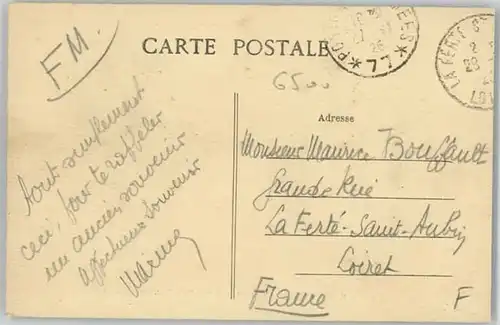 F.M.
CARTE POSTALE
6500
Adresse
Tout simplement
ceci, pour te rappeler
un ancien souvenir
Affectueux souvenir
Monsieur Maurice Bouffault
Grande Rue
La Ferté-Saint-Aubin
Loiret
France
F
LA FERTE ST